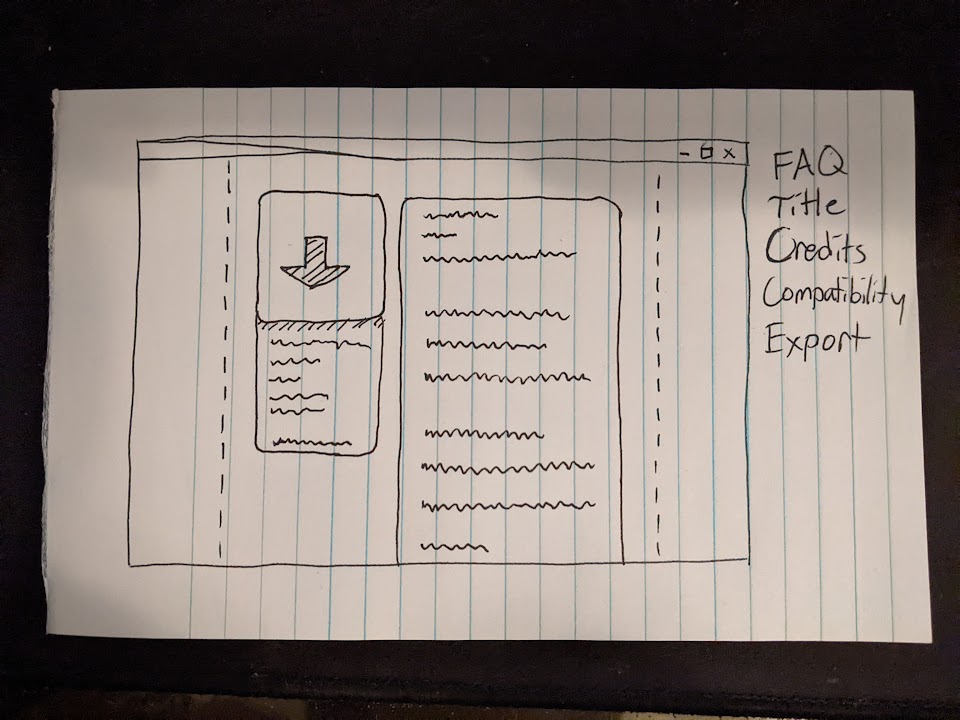 FAQ
Title
Credits
Compatibility
Export